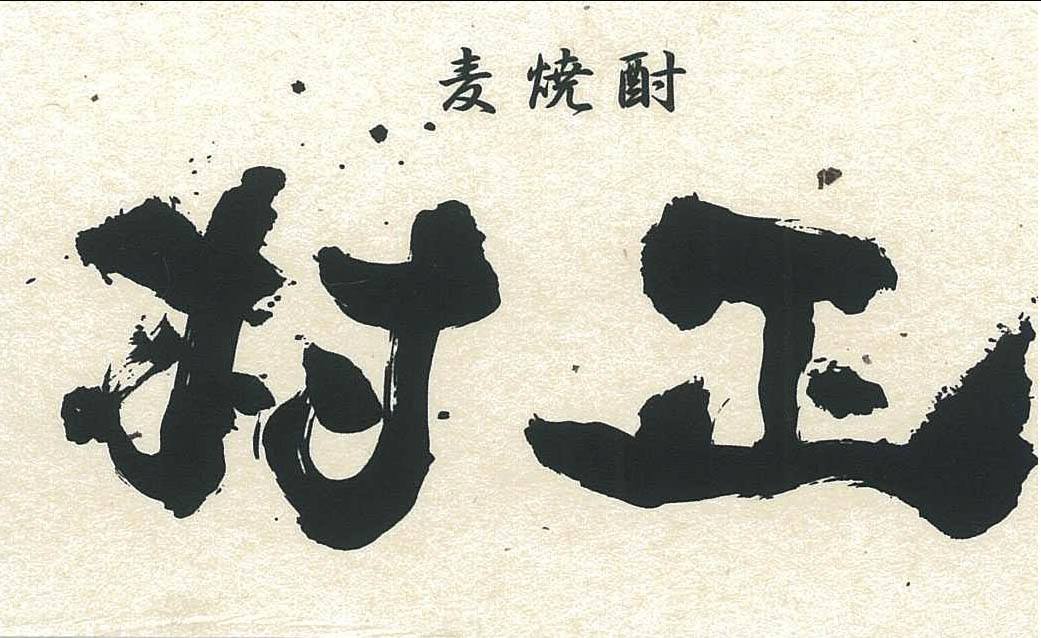 麦焼酎
村正